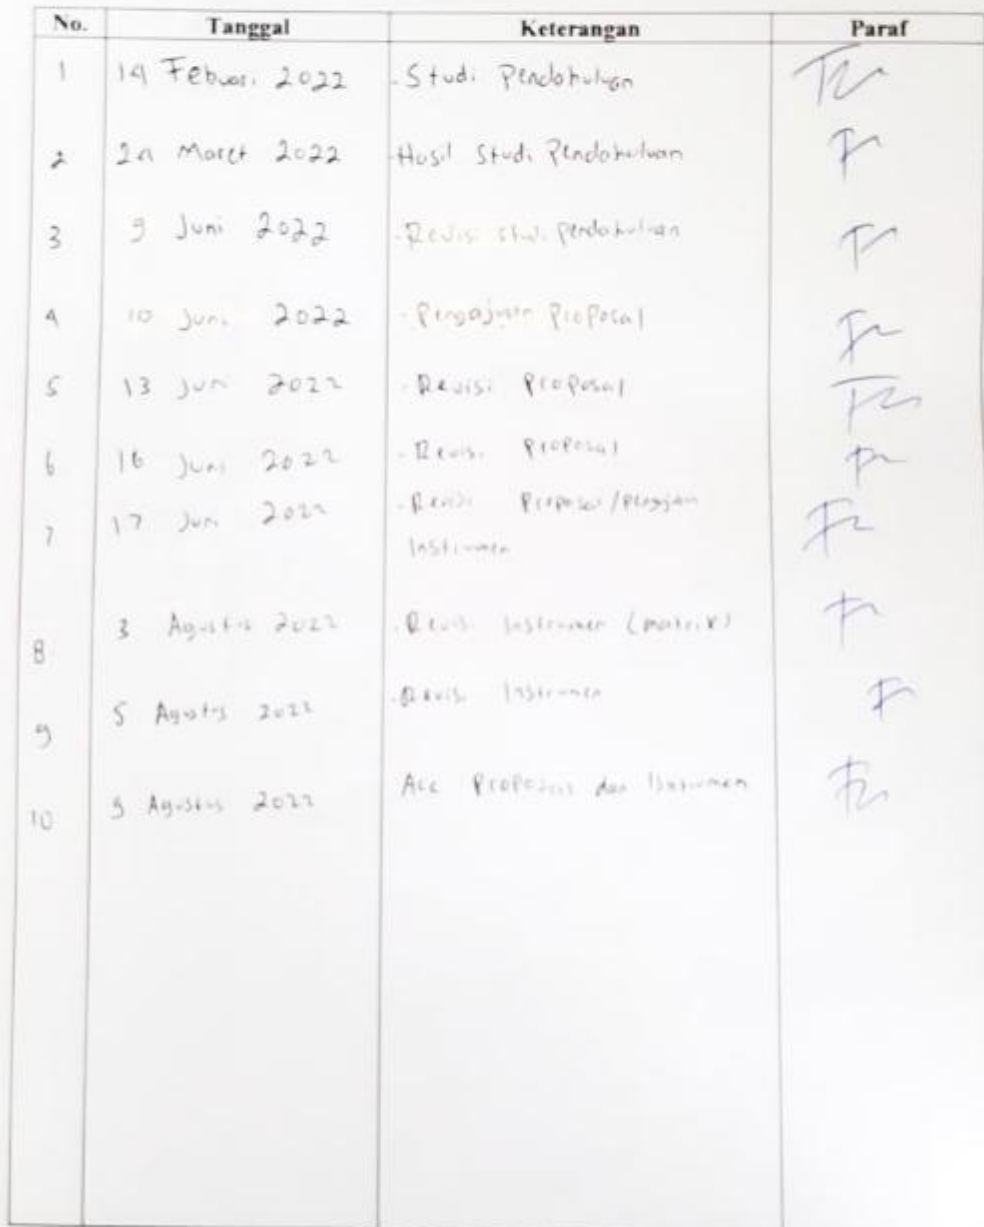 No. Tanggal Keterangan Paraf
1 14 Febuari 2022 - Studi Pendahuluan
2 Maret 2022 - Hasil Studi Pendahuluan
3 9 Juni 2022 - Revisi studi pendahuluan
4 10 Juni 2022 - Pengajuan Proposal
5 13 Juni 2022 - Revisi Proposal
6 16 Juni 2022 - Revisi Proposal
7 17 Juni 2022 - Revisi Proposal /
Instrumen
8 3 Agustus 2022 - Revisi Instrumen (matrix)
9 5 Agustus 2022 - Revisi Instrumen
10 Agustus 2022 Acc Proposal dan Instrumen